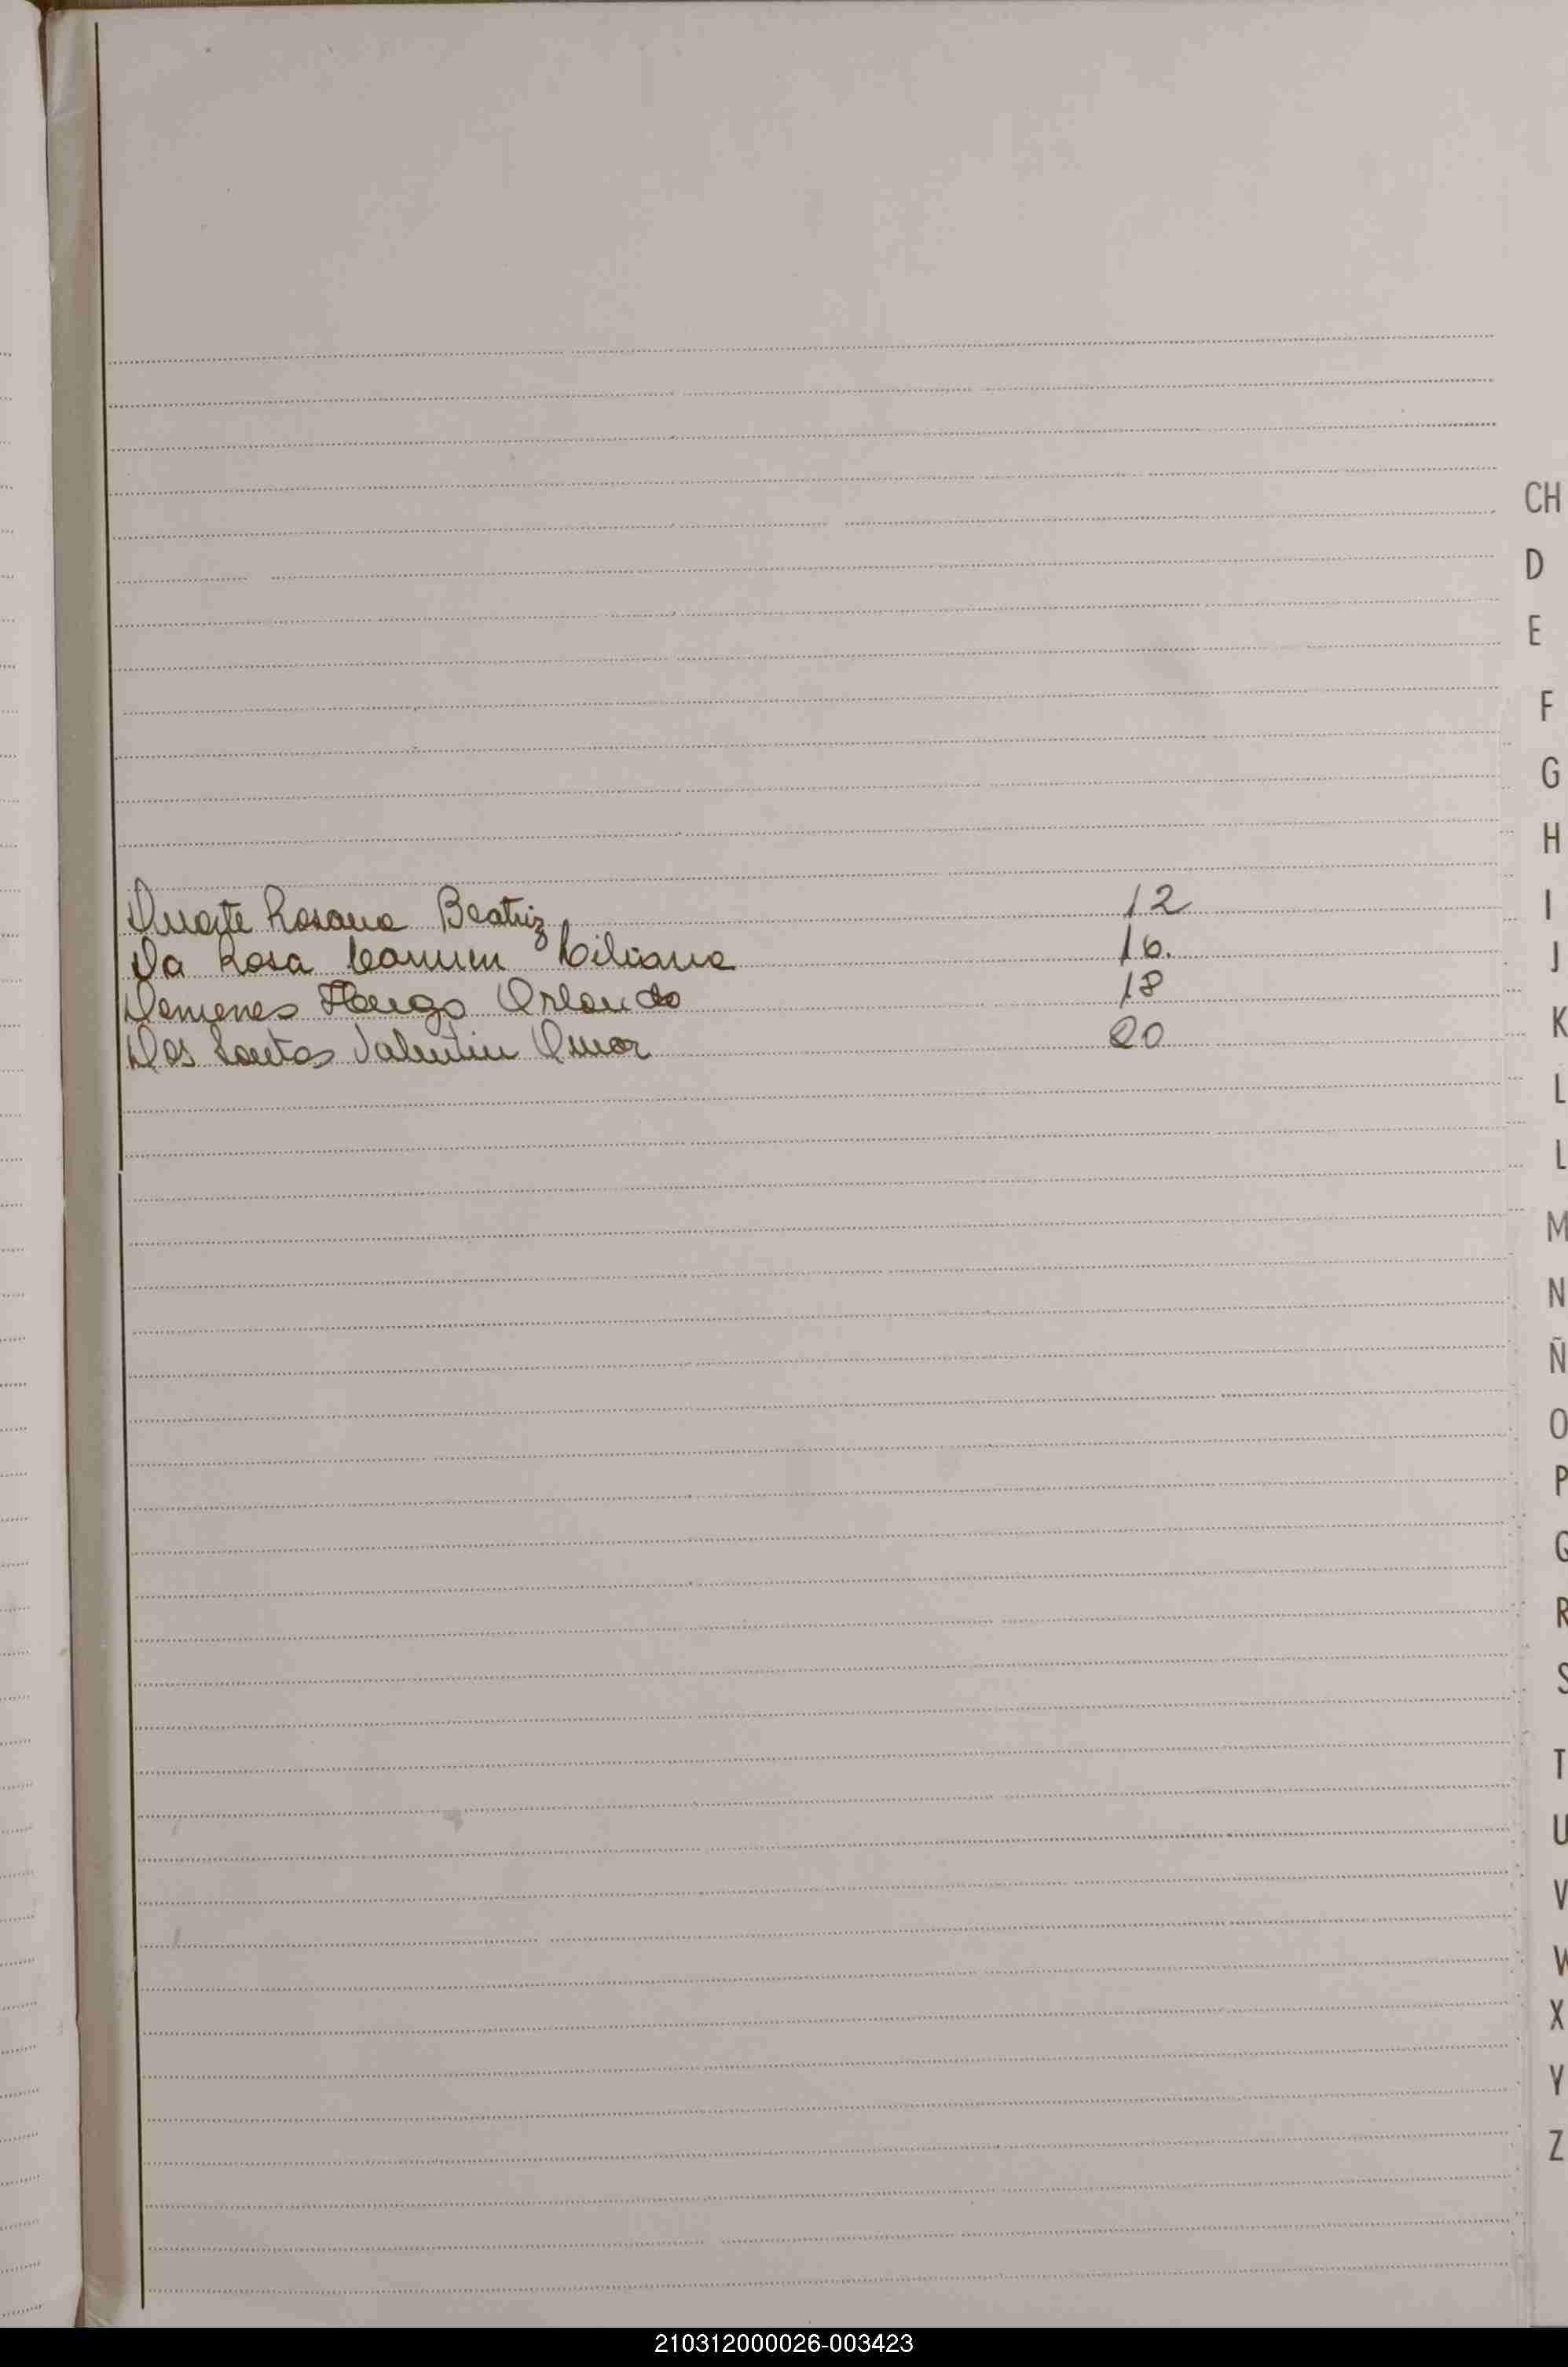 Duarte Rosana Beatriz 12
Da Rosa Carmen Liliana 16.
Demenes Hugo Orlando 18
Dos Santos Valentin Omar 20
CH
D
E
F
G
H
I
J
K
L
L
M
N
Ñ
O
P
Q
R
S
T
U
V
W
X
Y
Z
210312000026-003423